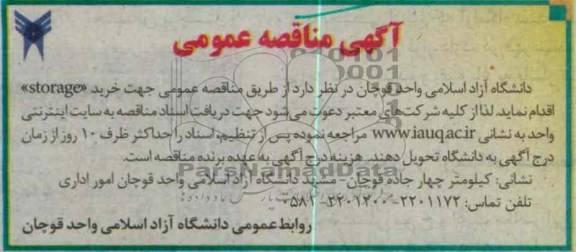 آگهی مناقصه عمومی
دانشگاه آزاد اسلامی واحد قوچان در نظر دارد از طریق مناقصه عمومی جهت خرید «storage»
اقدام نماید. لذا از کلیه شرکت‌های معتبر دعوت می‌شود جهت دریافت اسناد مناقصه به سایت اینترنتی
واحد به نشانی www.iauq.ac.ir مراجعه نموده پس از تنظیم، اسناد را حداکثر ظرف ۱۰ روز از زمان
درج آگهی به دانشگاه تحویل دهند. هزینه درج آگهی به عهده برنده مناقصه است.
ParsNamadData
نشانی: کیلومتر چهار جاده قوچان - مشهد دانشگاه آزاد اسلامی واحد قوچان امور اداری
تلفن تماس: ۲۲۰۱۱۷۲-
روابط عمومی دانشگاه آزاد اسلامی واحد قوچان